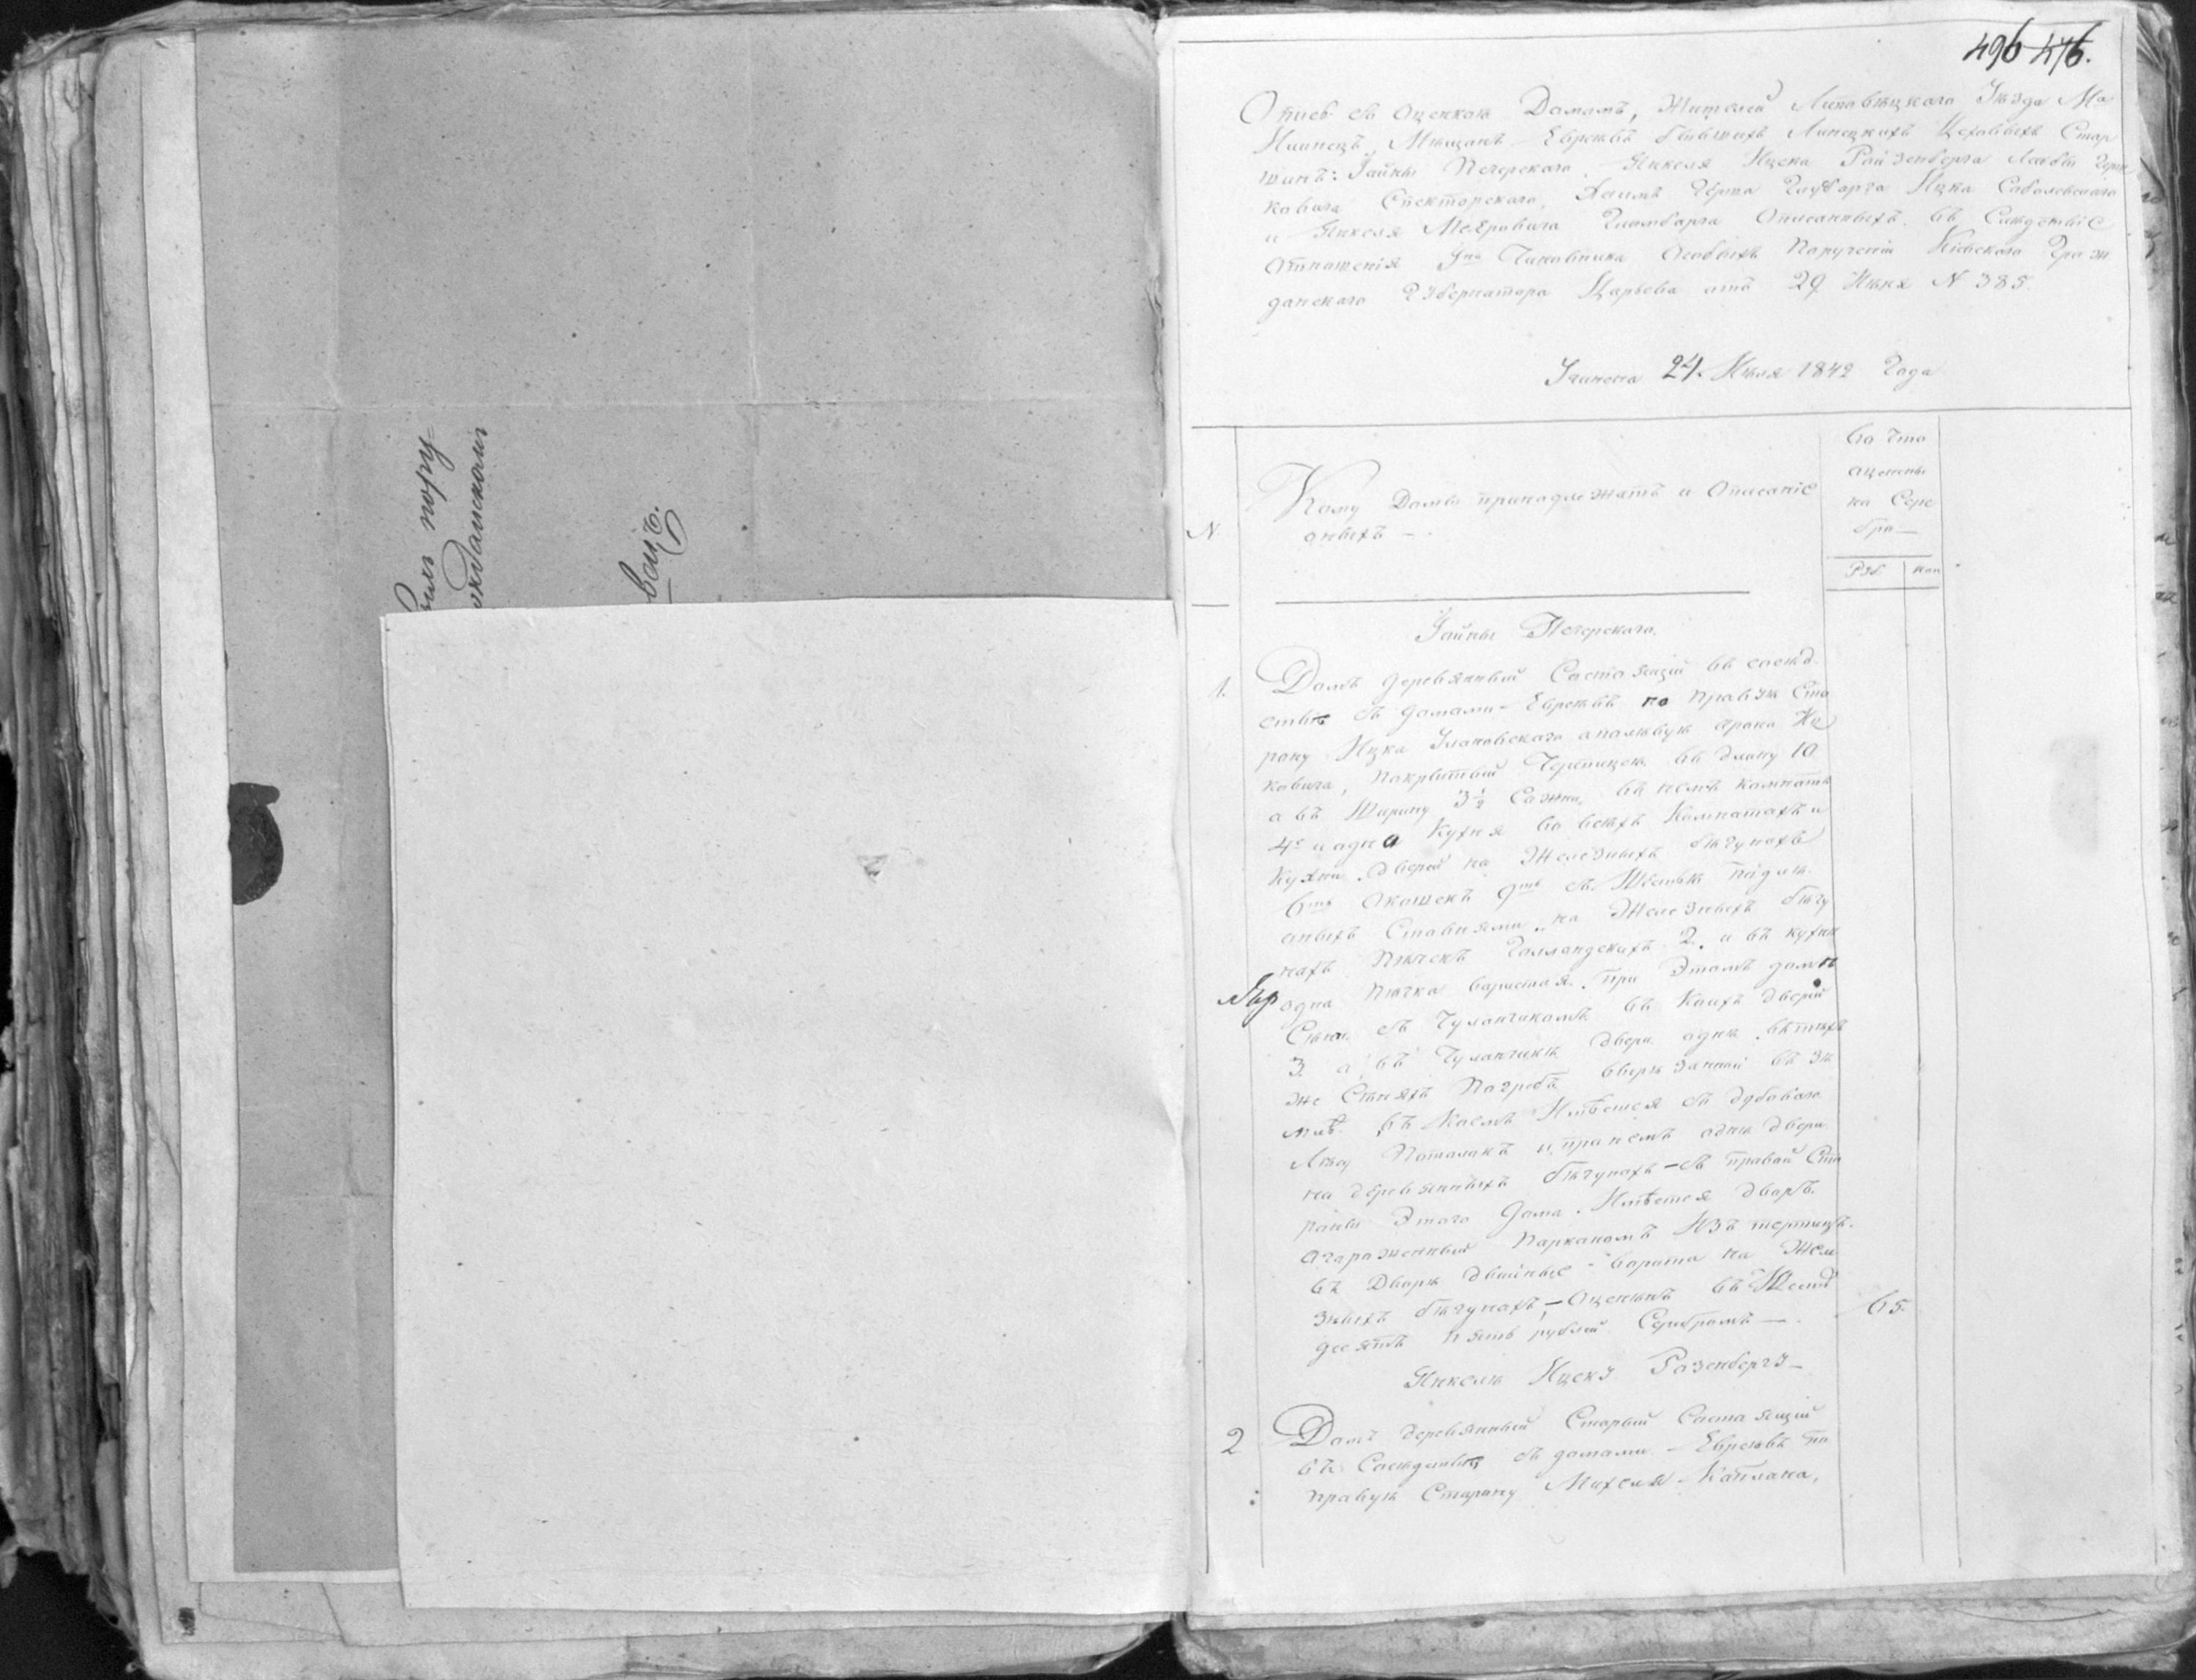 496 476.
Опись съ оценкою Домамъ, Жителей Липовецкаго Уезда Ма
Илинецъ, Мещанъ Евреевъ бывшихъ Липецкихъ Цеховыхъ Стар
шинъ: Гайны Печерскаго, Янкеля Ицека Райзенберга Лаебы Герш
ковича Спекторскаго, Хаима Герша Ицка Соболевскаго
и Янкеля Меэровича Гитбарга Описанныхъ въ Следствіе
Отношенія Гна Чиновника Особыхъ Порученій Кіевскаго Граж
данскаго Губернатора Царьева отъ 29 Июня N 385.
Учинена 24. Июля 1842 Года
N.
Кому Домы принадлежатъ и Описаніе
оныхъ —.
во Что
оценены
на Сере
бро —
Руб
коп
Гайны Печерскаго.
1. Домъ деревянный Состоящій въ сосед
ствіе съ домами Евреевъ по правую Сто
рону Ицка Улановскаго а полевую Арона Иц
ковича, покрытый Черепицею въ длину 10
а въ Ширину 3½ Сажни, въ немъ комнатъ
4е и одна Кухня во всехъ Комнатахъ и
Кухни дверей на Железныхъ бегунахъ
6ть Окошекъ 9ть съ Шестью
Ставнями, на Железныхъ бегу
нахъ Печекъ Голландскихъ 2. и въ кухни
одна печка вариста я. при Этомъ доме
Сени съ Чуланчикомъ въ Коихъ дверей
3. а въ Чуланчике двери одне, въ техъ
же Сеняхъ Погребъ въ Зе
мле. въ Коемъ Имеется съ дубоваго
Лесу Потолокъ и при немъ одне двери
на деревянныхъ бегунахъ — съ правой Сто
роны Этого дома. Имеется дворъ.
огороженный Парканомъ Изъ тертицъ.
въ Дворе двойные ворота на Желе
зныхъ бегунахъ, — Оценень въ Шесть
десятъ пять рублей Серебромъ —. 65.
Янкелю Ицеку Розенбергу —
2 Домъ деревянный Старый Состоящій
въ Соседствіе съ домами Евреевъ по
правую Сторону Михеля Каплана,
порy-
вацъ.